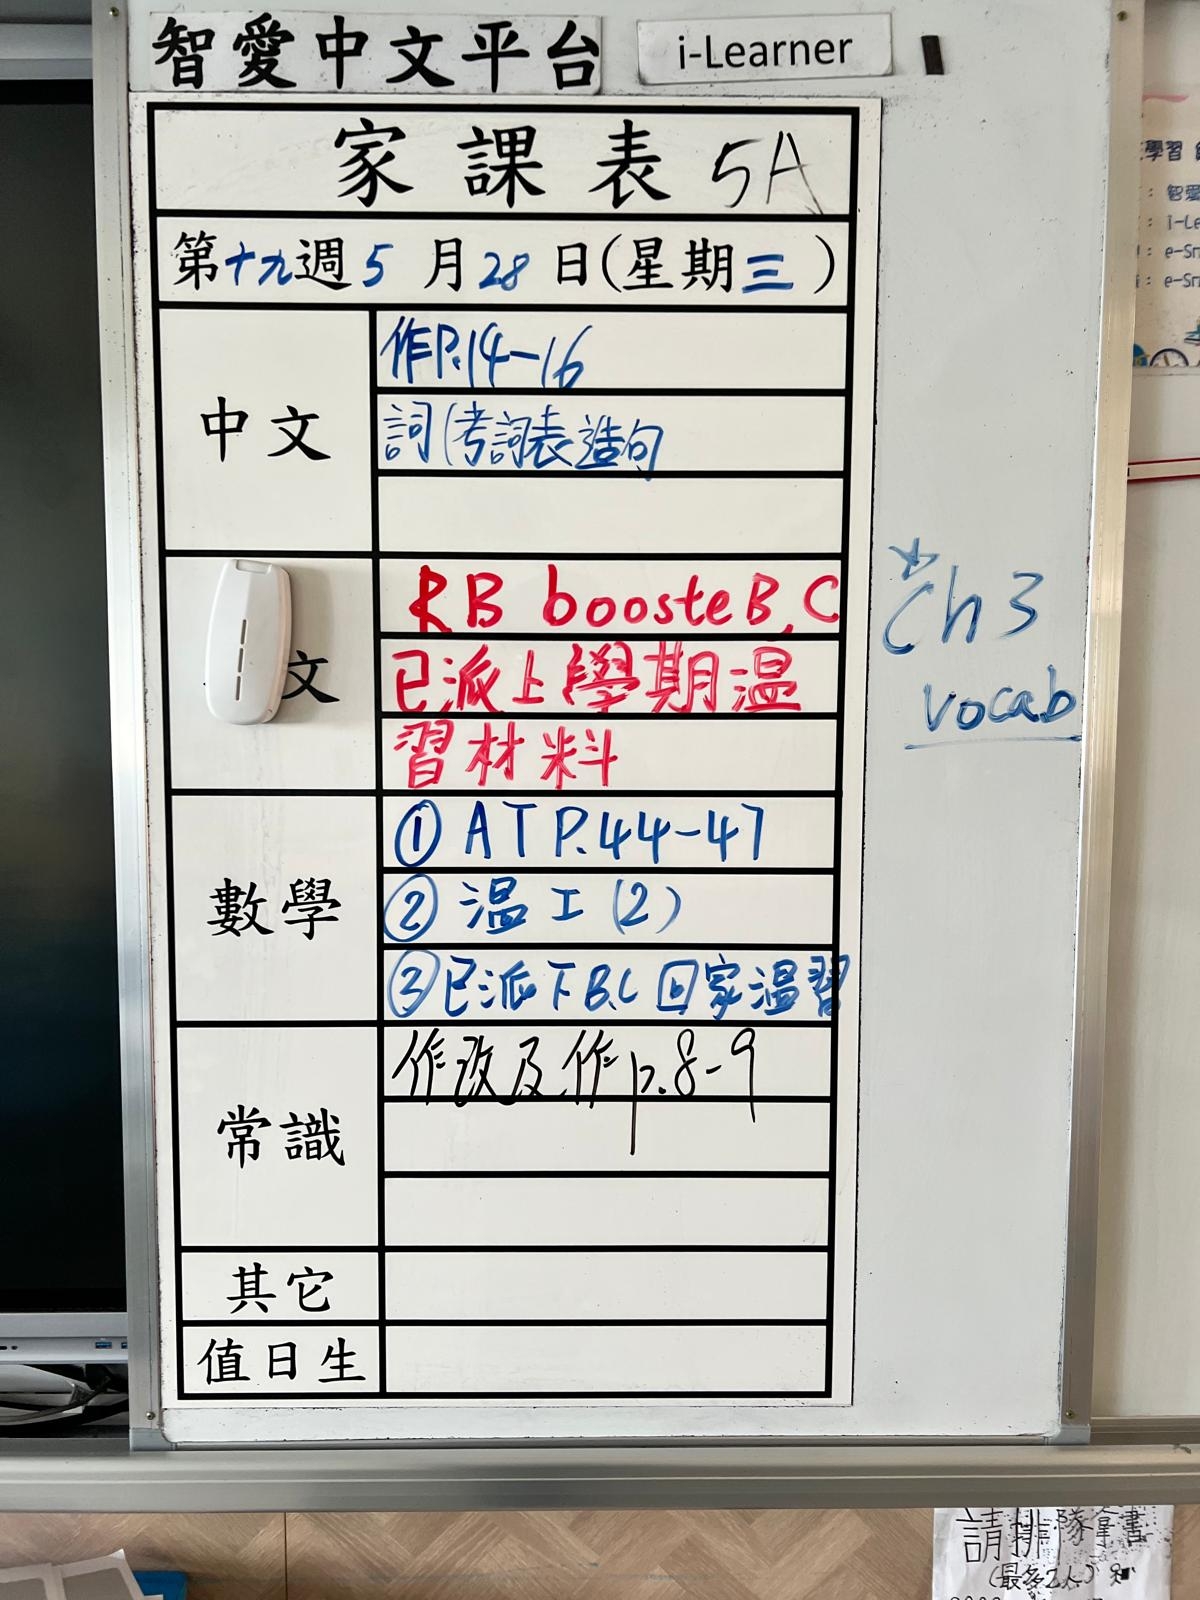 智愛中文平台
i-Learner
家課表 5A
第十九週 5月28日(星期三)
中文
作P.14-16
詞(考詞表造句
文
RB booste B,C
已派上學期温
習材料
☆Ch3
vocab
數學
① AT P.44-47
② 温工(2)
③已派下B,C回家温習
常識
作改及作p.8-9
其它
值日生
學習
: 智愛
: i-Le
: e-Sm
: e-Sm
請排隊拿書
(最多2人)